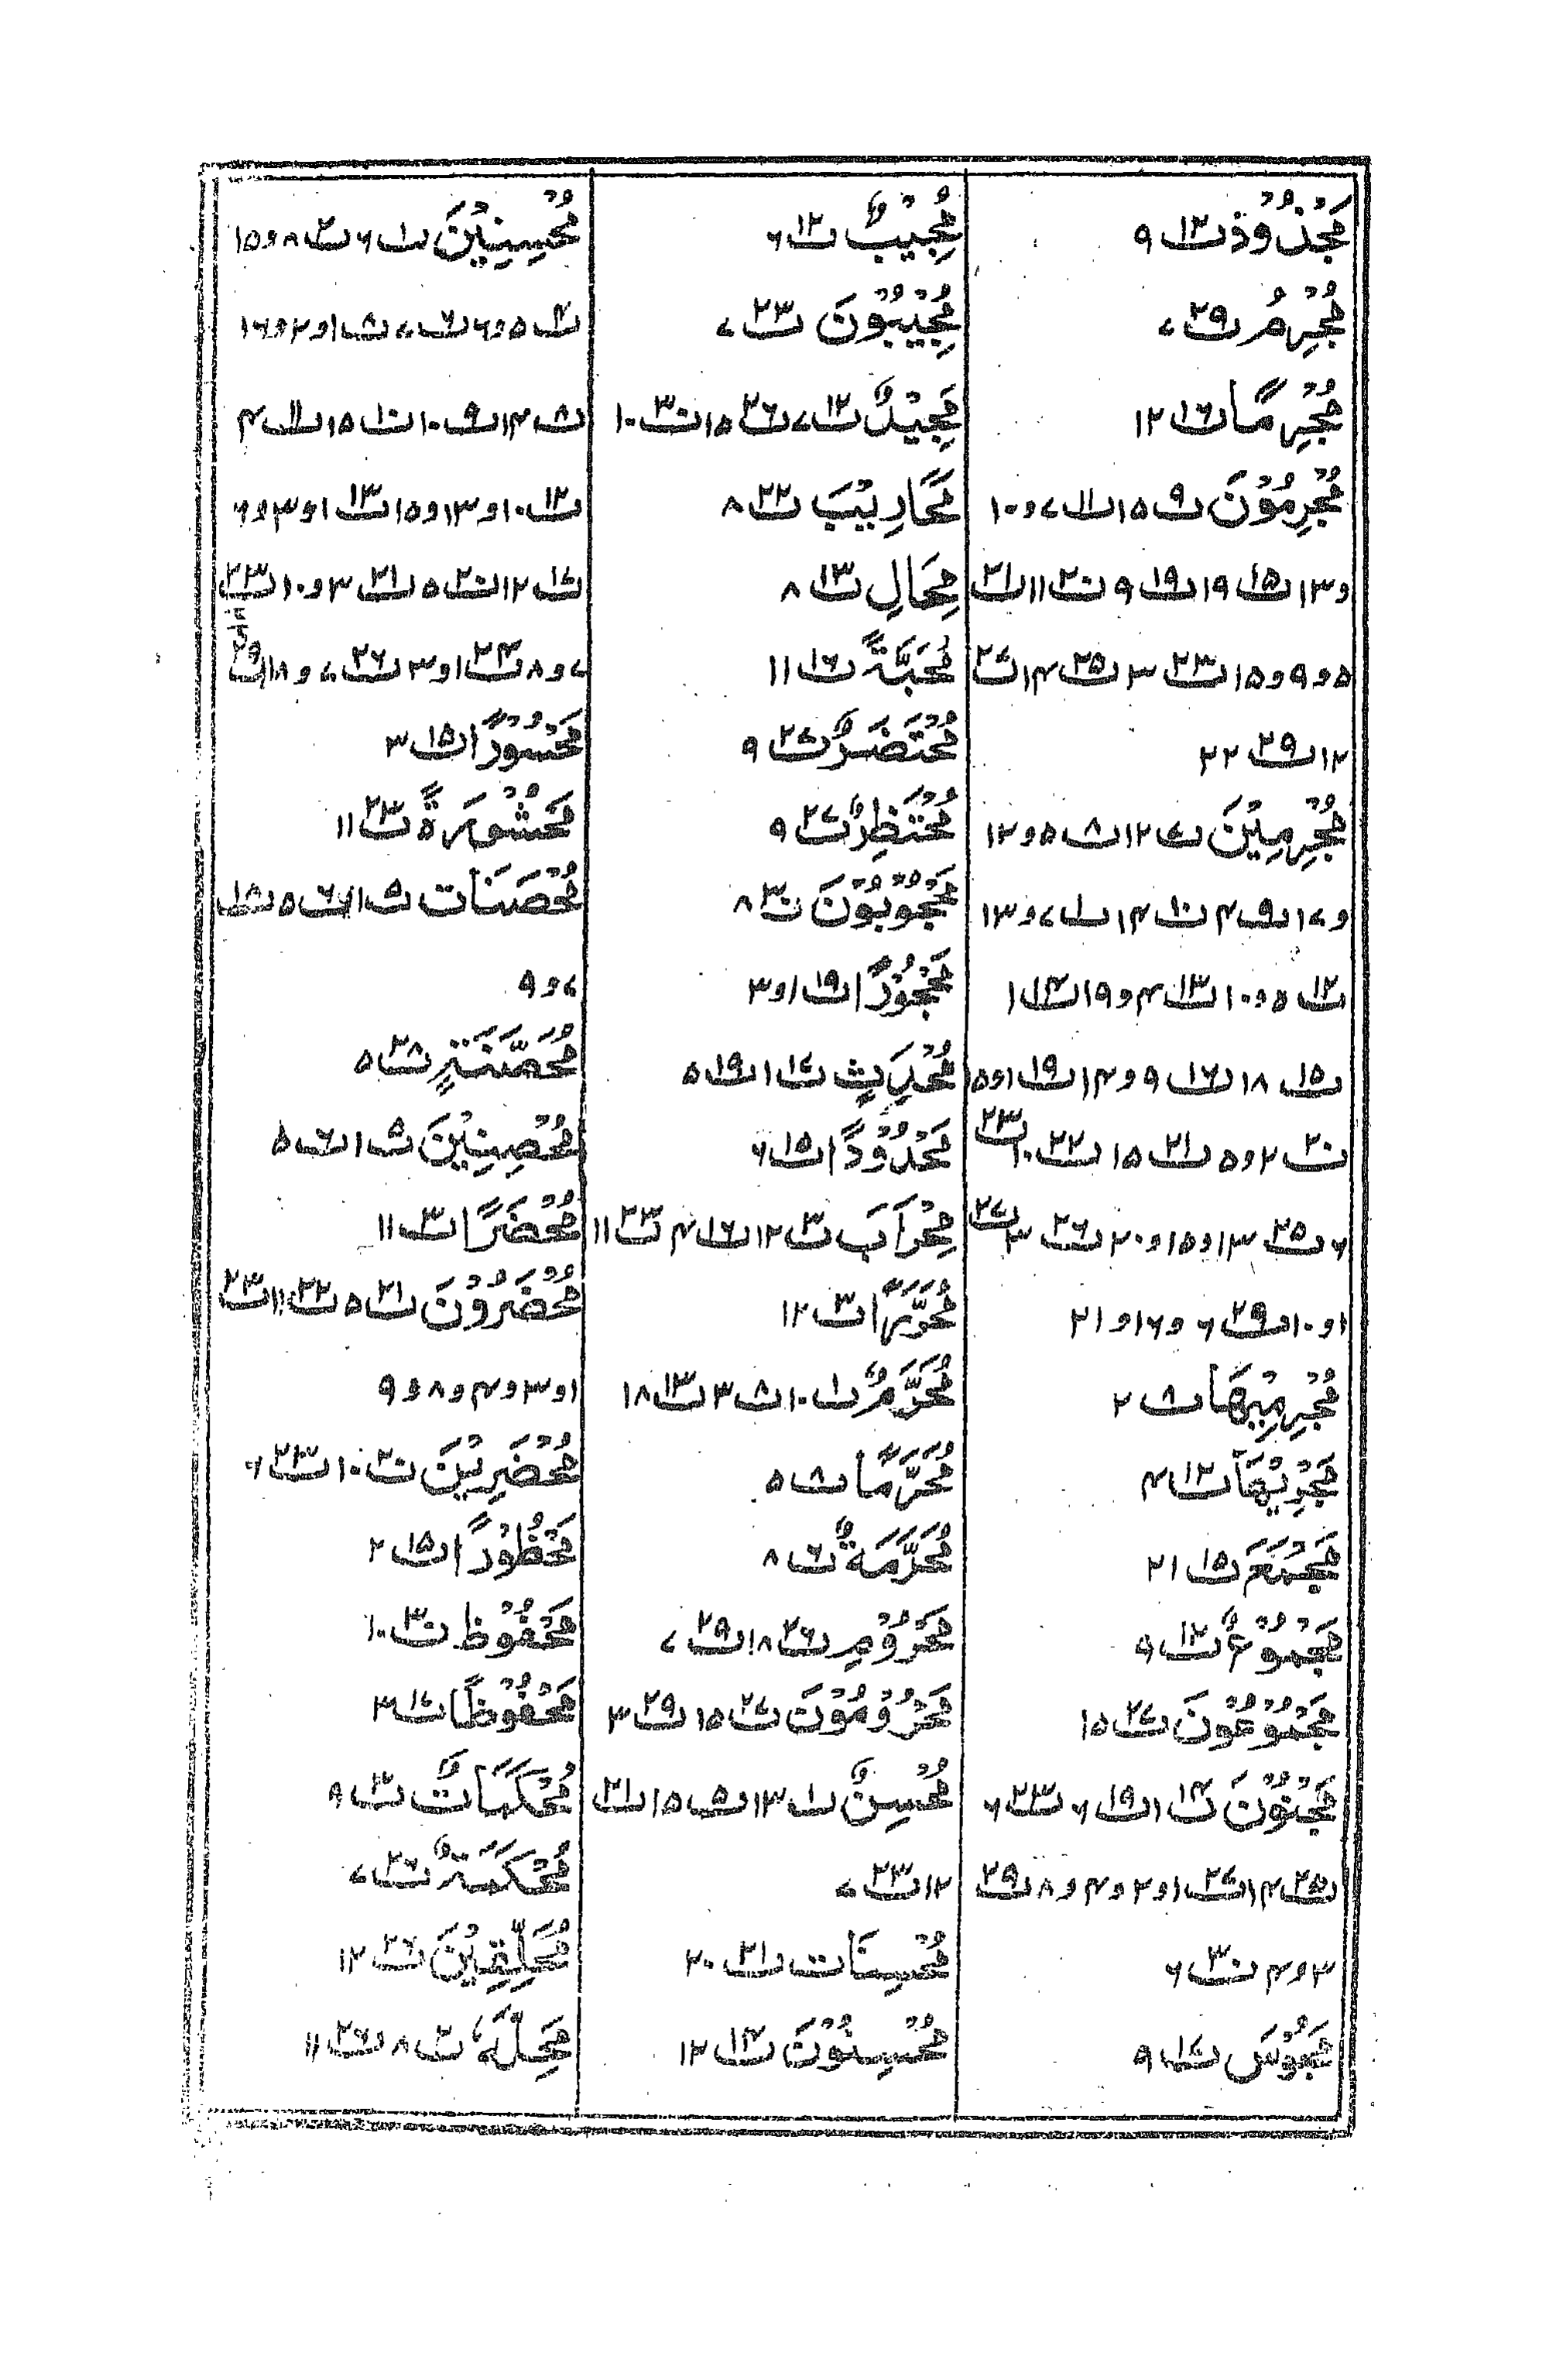 مَجْذُوْذ ت۱۲ ۹
مُجْرِمُ ت۲۹ ۷
مُجْرِمًا ت۱۶ ۱۲
مُجْرِمُوْنَ ت۹ ۱۵ ت۱۱ ۷ و۱۰
و۱۳ ت۱۵ ۱۹ ت۱۹ ۹ ت۲۰ ۱۱ ت۲۱
۵ و۹ و۱۵ ت۲۳ ۳ ت۲۵ ۱۴ ت۲۷
۱۲ ت۲۹ ۲۲
مُجْرِمِيْنَ ت۷ ۱۲ ت۸ ۵ و۱۲
و۱۷ ت۹ ۴ ت۱۰ ۱۴ ت۱۱ ۷ و۱۳
ت۱۲ ۵ و۱۰ ت۱۳ ۴ و۱۹ ت۱۴ ۱
ت۱۵ ۱۸ ت۱۶ ۹ و۱۴ ت۱۹ ۱ و۵
ت۲۰ ۲ و۵ ت۲۱ ۱۵ ت۲۲ ۱۰ ت۲۳
۶ ت۲۵ ۱۳ و۱۵ و۲۰ ت۲۶ ۳ ت۲۷
۱ و۱۰ ت۲۹ ۶ و۱۶ و۲۱
مُجْرِمِيْهَا ت۸ ۲
مَجْرٖىهَا ت۱۲ ۴
مَجْمَعَ ت۱۵ ۲۱
مَجْمُوْعٌ ت۱۲ ۹
مَجْمُوْعُوْنَ ت۲۷ ۱۵
مَجْنُوْنَ ت۱۴ ۱ ت۱۹ ۶ ت۲۳ ۶
ت۲۵ ۱۴ ت۲۷ ۱ و۲ و۴ و۸ ت۲۹
۳ و۴ ت۳۰ ۶
مَجُوْسَ ت۱۷ ۹
مُجِيْبٌ ت۱۲ ۶
مُجِيْبُوْنَ ت۲۳ ۷
مَجِيْدٌ ت۱۲ ۷ ت۲۶ ۱۵ ت۳۰ ۱۰
مَحَارِيْبَ ت۲۲ ۸
مِحَالِ ت۱۳ ۸
مَحَبَّةً ت۱۶ ۱۱
مُحْتَضَرٌ ت۲۷ ۹
مُحْتَظِرِ ت۲۷ ۹
مَحْجُوْبُوْنَ ت۳۰ ۸
مَحْجُوْرًا ت۱۹ ۱ و۳
مُحْدَثٍ ت۱۷ ۱ ت۱۹ ۵
مَحْذُوْرًا ت۱۵ ۶
مِحْرَابَ ت۳ ۱۲ ت۱۶ ۴ ت۲۳ ۱۱
مُحَرَّرًا ت۳ ۱۲
مُحَرَّمٌ ت۱ ۱۰ ت۸ ۳ ت۱۳ ۱۸
مُحَرَّمًا ت۸ ۵
مُحَرَّمَةٌ ت۶ ۸
مَحْرُوْمِ ت۲۶ ۱۸ ت۲۹ ۷
مَحْرُوْمُوْنَ ت۲۷ ۱۵ ت۲۹ ۳
مُحْسِنٌ ت۱ ۱۳ ت۵ ۱۵ ت۲۱
۱۲ ت۲۳ ۷
مُحْسِنَات ت۲۱ ۲۰
مُحْسِنُوْنَ ت۱۴ ۱۲
مُحْسِنِيْنَ ت۱ ۶ ت۲ ۸ و۱۵
ت۴ ۵ و۶ ت۶ ۷ ت۸ ۱ و۲ و۱۶
ت۸ ۱۴ ت۹ ۱۰ ت۱۰ ۱۵ ت۱۱ ۴
ت۱۲ ۱۰ و۱۳ و۱۵ ت۱۳ ۱ و۳ و۶
ت۱۷ ۱۲ ت۲۰ ۵ ت۲۱ ۳ و۱۰ ت۲۳
۷ و۸ ت۲۴ ۱ و۳ ت۲۶ ۷ و۱۸ ت۲۹
مَحْسُوْرًا ت۱۵ ۳
مَحْشُوْرَةً ت۲۳ ۱۱
مُحْصَنَات ت۵ ۱ ت۶ ۵ ت۱۸
۷ و۹
مُحَصَّنَةٍ ت۲۸ ۵
مُحْصِنِيْنَ ت۵ ۱ ت۶ ۵
مُحْضَرًا ت۳ ۱۱
مُحْضَرُوْنَ ت۲۱ ۵ ت۲۲ ۱۱ ت۲۳
۱ و۳ و۴ و۸ و۹
مُحْضَرِيْنَ ت۲۰ ۱۰ ت۲۳ ۶
مَحْظُوْرًا ت۱۵ ۲
مَحْفُوْظ ت۳۰ ۱۰
مَحْفُوْظًا ت۱۷ ۳
مُحْكَمَاتٌ ت۳ ۹
مُحْكَمَةٌ ت۲۶ ۷
مُحَلِّقِيْنَ ت۲۶ ۱۲
مَحِلَّهٗ ت۲ ۸ ت۲۶ ۱۱